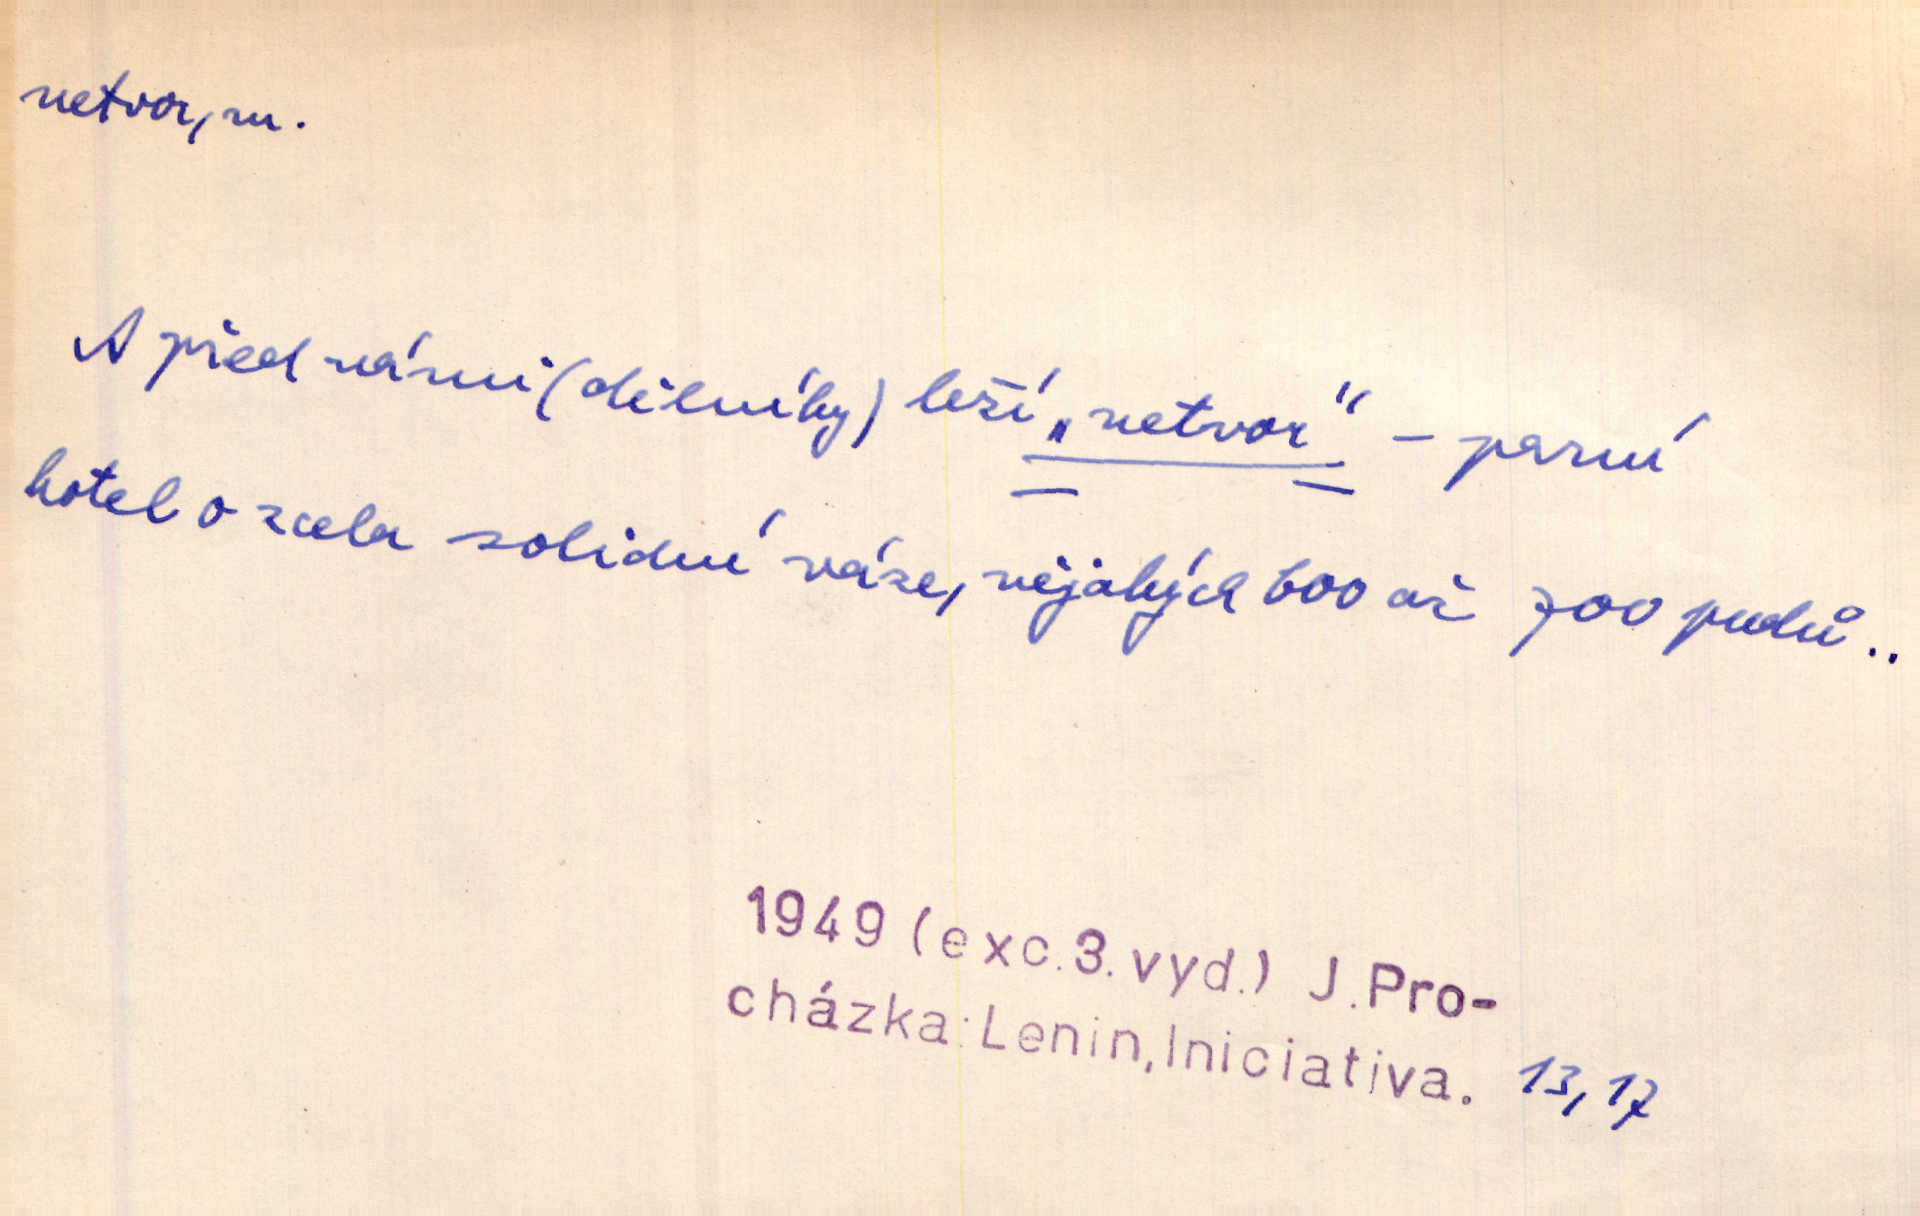 netvor, m.
A před námi (dělníky) leží „netvor" – parní
kotel o zcela solidní váze, nějakých 600 až 700 pudů..
1949 (exc. 3. vyd.) J. Pro-
cházka: Lenin, Iniciativa. 13, 17